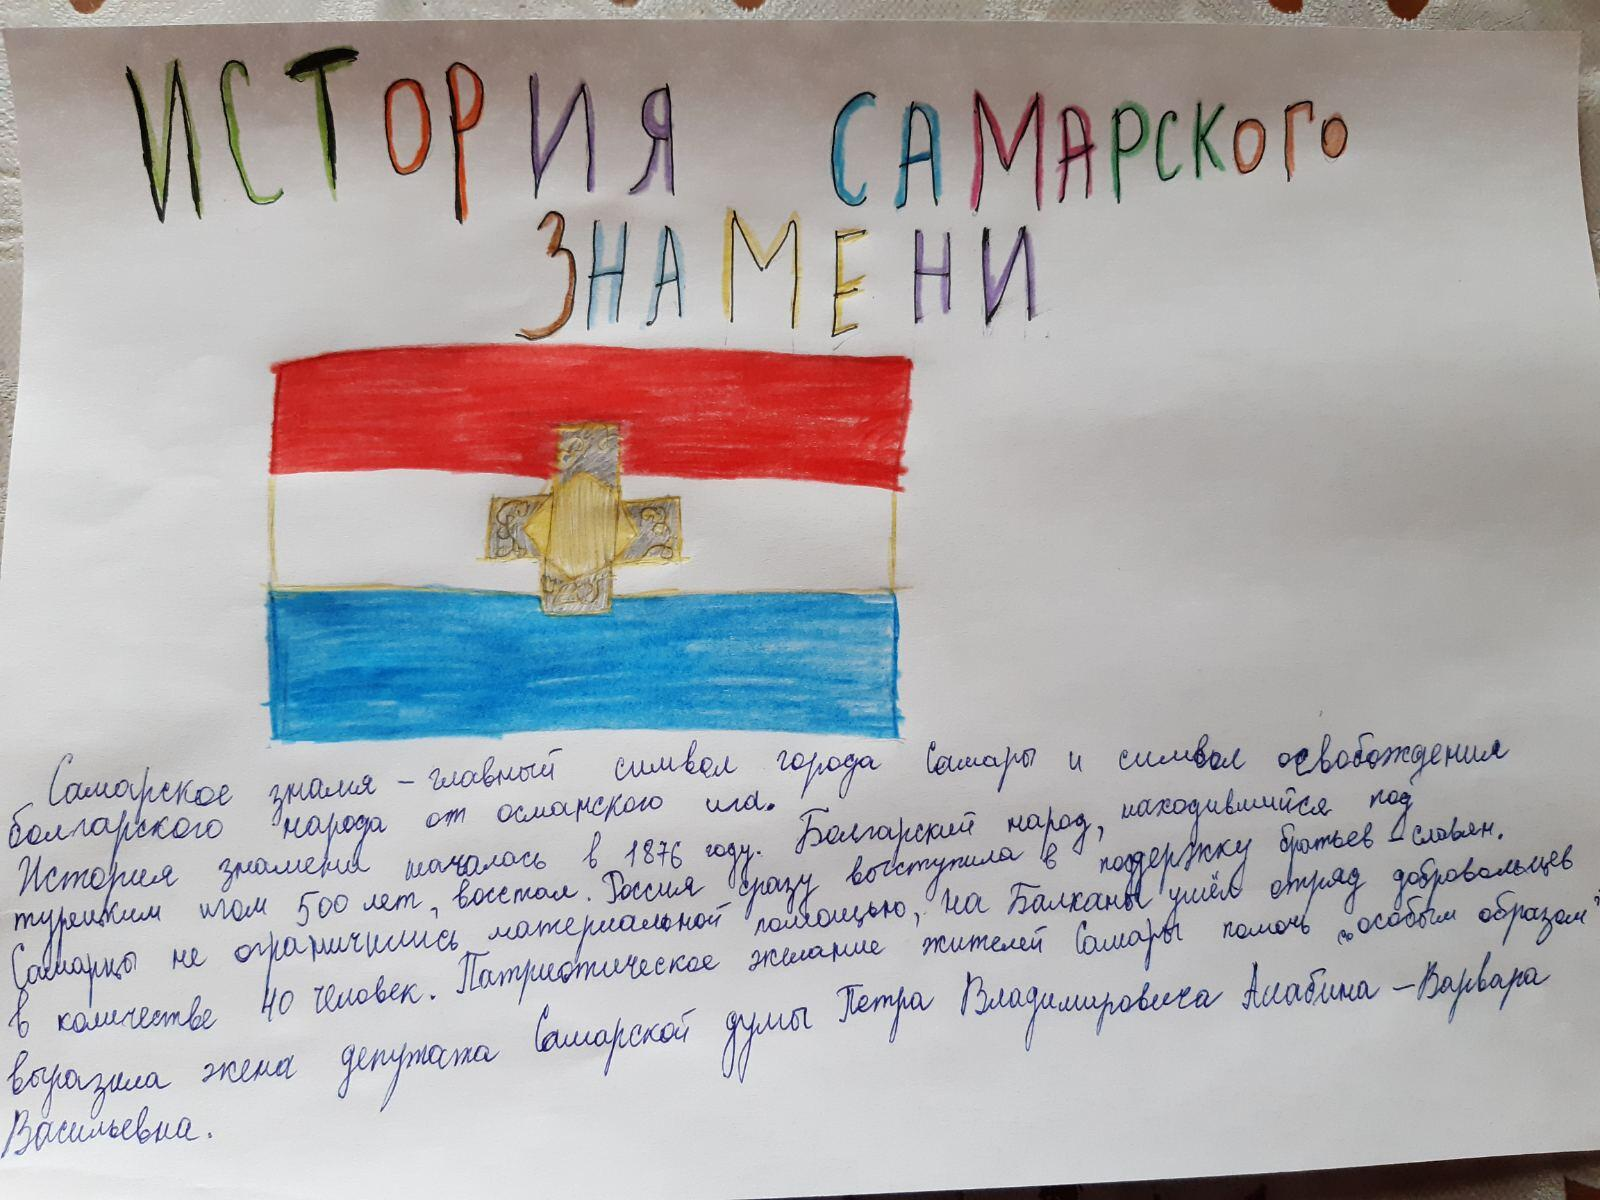 ИСТОРИЯ САМАРСКОГО
ЗНАМЕНИ
Самарское знамя – главный символ города Самары и символ освобождения
болгарского народа от османского ига.
История знамени началась в 1876 году. Болгарский народ, находившийся под
турецким игом 500 лет, восстал. Россия сразу выступила в поддержку братьев – славян.
Самарцы не ограничились материальной помощью, на Балканы ушёл отряд добровольцев
в количестве 40 человек. Патриотическое желание жителей Самары помочь „особым образом"
выразила жена депутата Самарской думы Петра Владимировича Алабина – Варвара
Васильевна.